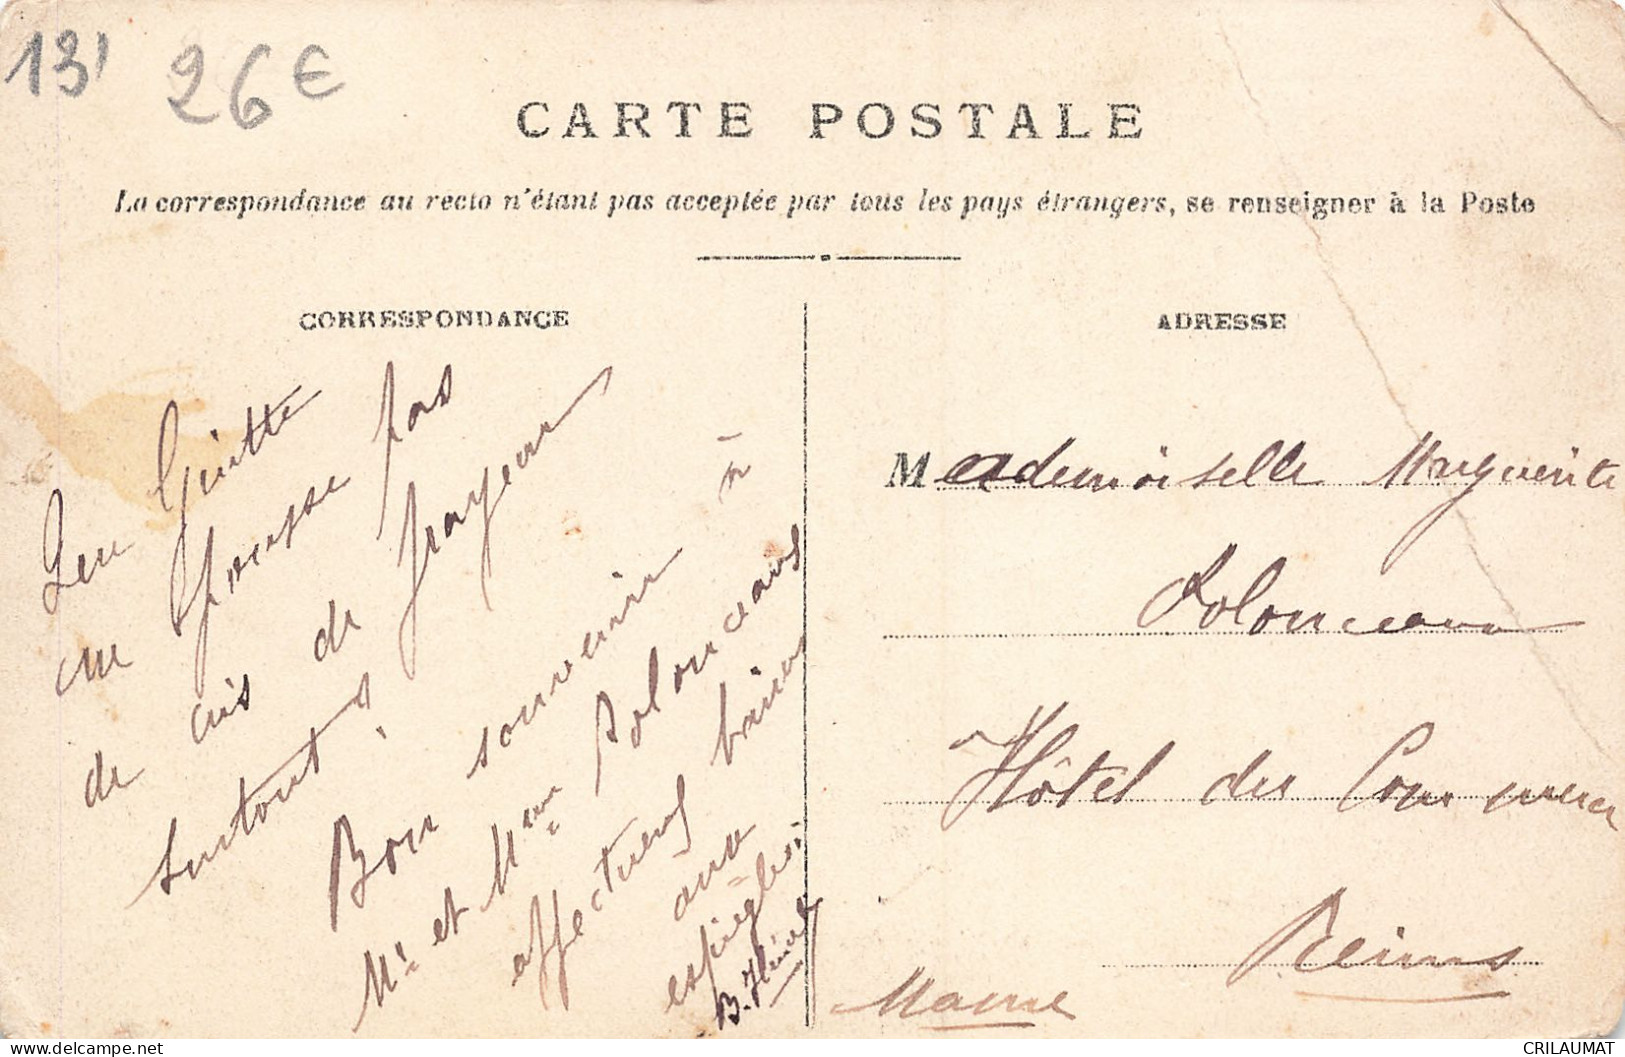 13'
26€
CARTE POSTALE
La correspondance au recto n'étant pas acceptée par tous les pays étrangers, se renseigner à la Poste
CORRESPONDANCE
ADRESSE
Guitte
ne pousse pas
de cris de frayeur
surtout!
Bon souvenir à
Mr et Mme Polonceaux
affectueux baisers
aux
espiègles
B.
Mademoiselle Marguerite
Polonceaux
Hôtel du Commerce
Reims
Marne
CRILAUMAT